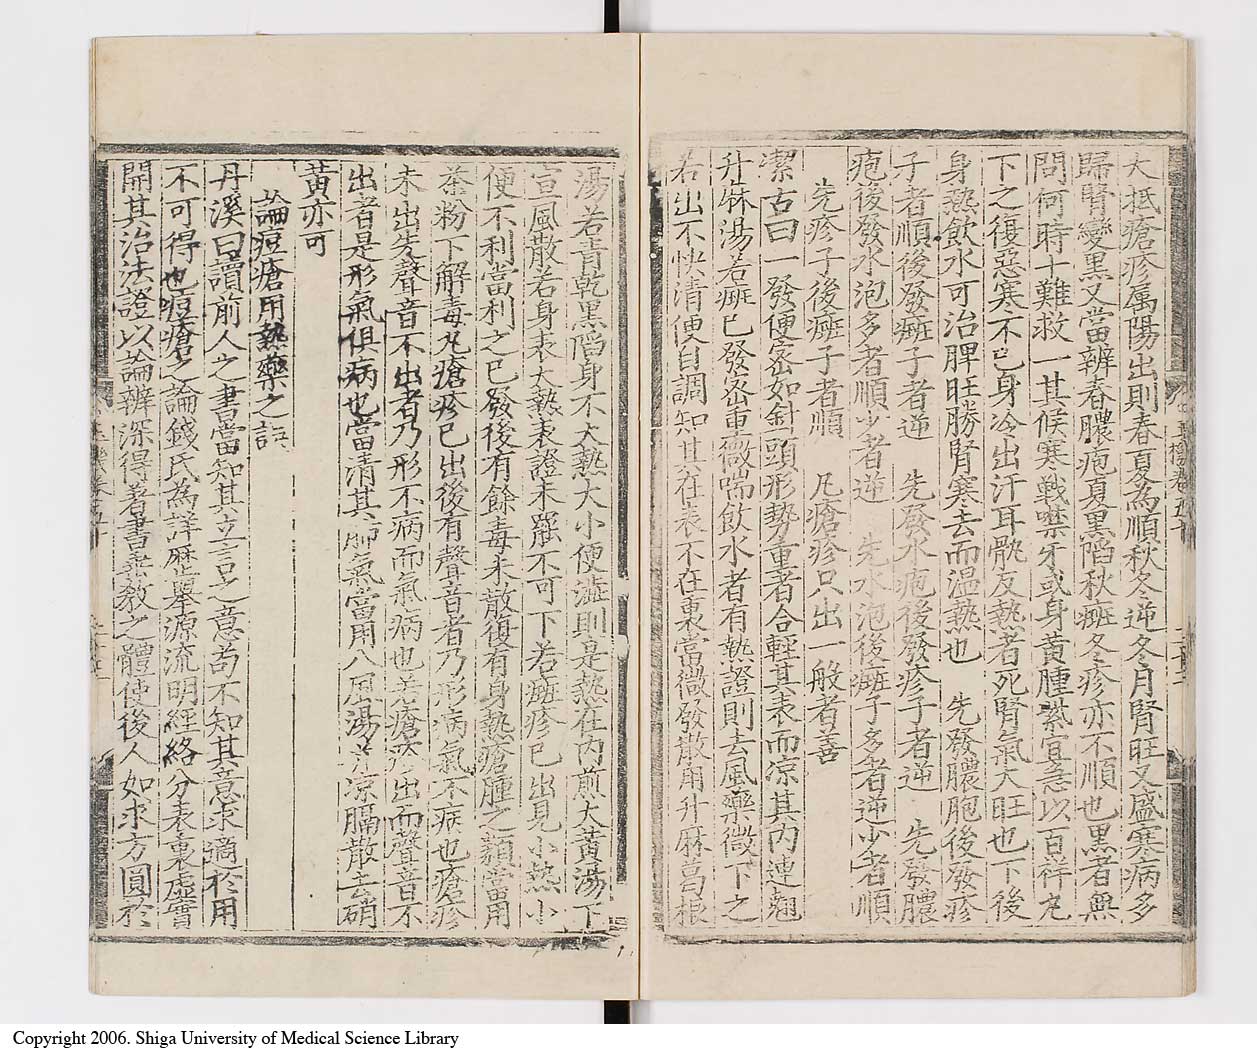 大抵瘡疹屬陽出則春夏為順秋冬逆冬月腎旺又盛寒病多
歸腎變黒又當辨春膿疱夏黒陷秋癍冬疹亦不順也黒者無
問何時十難救一其候寒戰噤牙或身黄腫紫宜急以百祥丸
下之復惡寒不已身冷出汗耳骩反熱者死腎氣大旺也下後
身熱飲水可治脾旺勝腎寒去而温熱也 先發膿胞後發疹
子者順後發癍子者逆 先發水疱後發疹子者逆 先發膿
疱後發水泡多者順少者逆 先水泡後癍子多者逆少者順
先疹子後癍子者順 凡瘡疹只出一般者善
潔古曰一發便宻如針頭形勢重者合輕其表而凉其内連翹
升麻湯若癍已發宻重微喘飲水者有熱證則去風藥微下之
若出不快清便自調知其在表不在裏當微發散用升麻葛根
湯若青乾黒陷身不大熱大小便澁則是熱在内煎大黄湯下
宣風散若身表大熱表證未罷不可下若癍疹已出見小熱小
便不利當利之已發後有餘毒未散復有身熱瘡腫之類當用
茶粉下解毒凡瘡疹已出後有聲音者乃形病氣不病也瘡疹
未出先聲音不出者乃形不病而氣病也若瘡疹出而聲音不
出者是形氣俱病也當清其肺氣當用八風湯并凉膈散去硝
黄亦可
論痘瘡用熱藥之誤
丹溪曰讀前人之書當知其立言之意苟不知其意求適於用
不可得也痘瘡之論錢氏為詳歷舉源流明經絡分表裏虚實
開其治法證以論辨深得著書垂教之體使後人如求方圓於
Copyright 2006. Shiga University of Medical Science Library